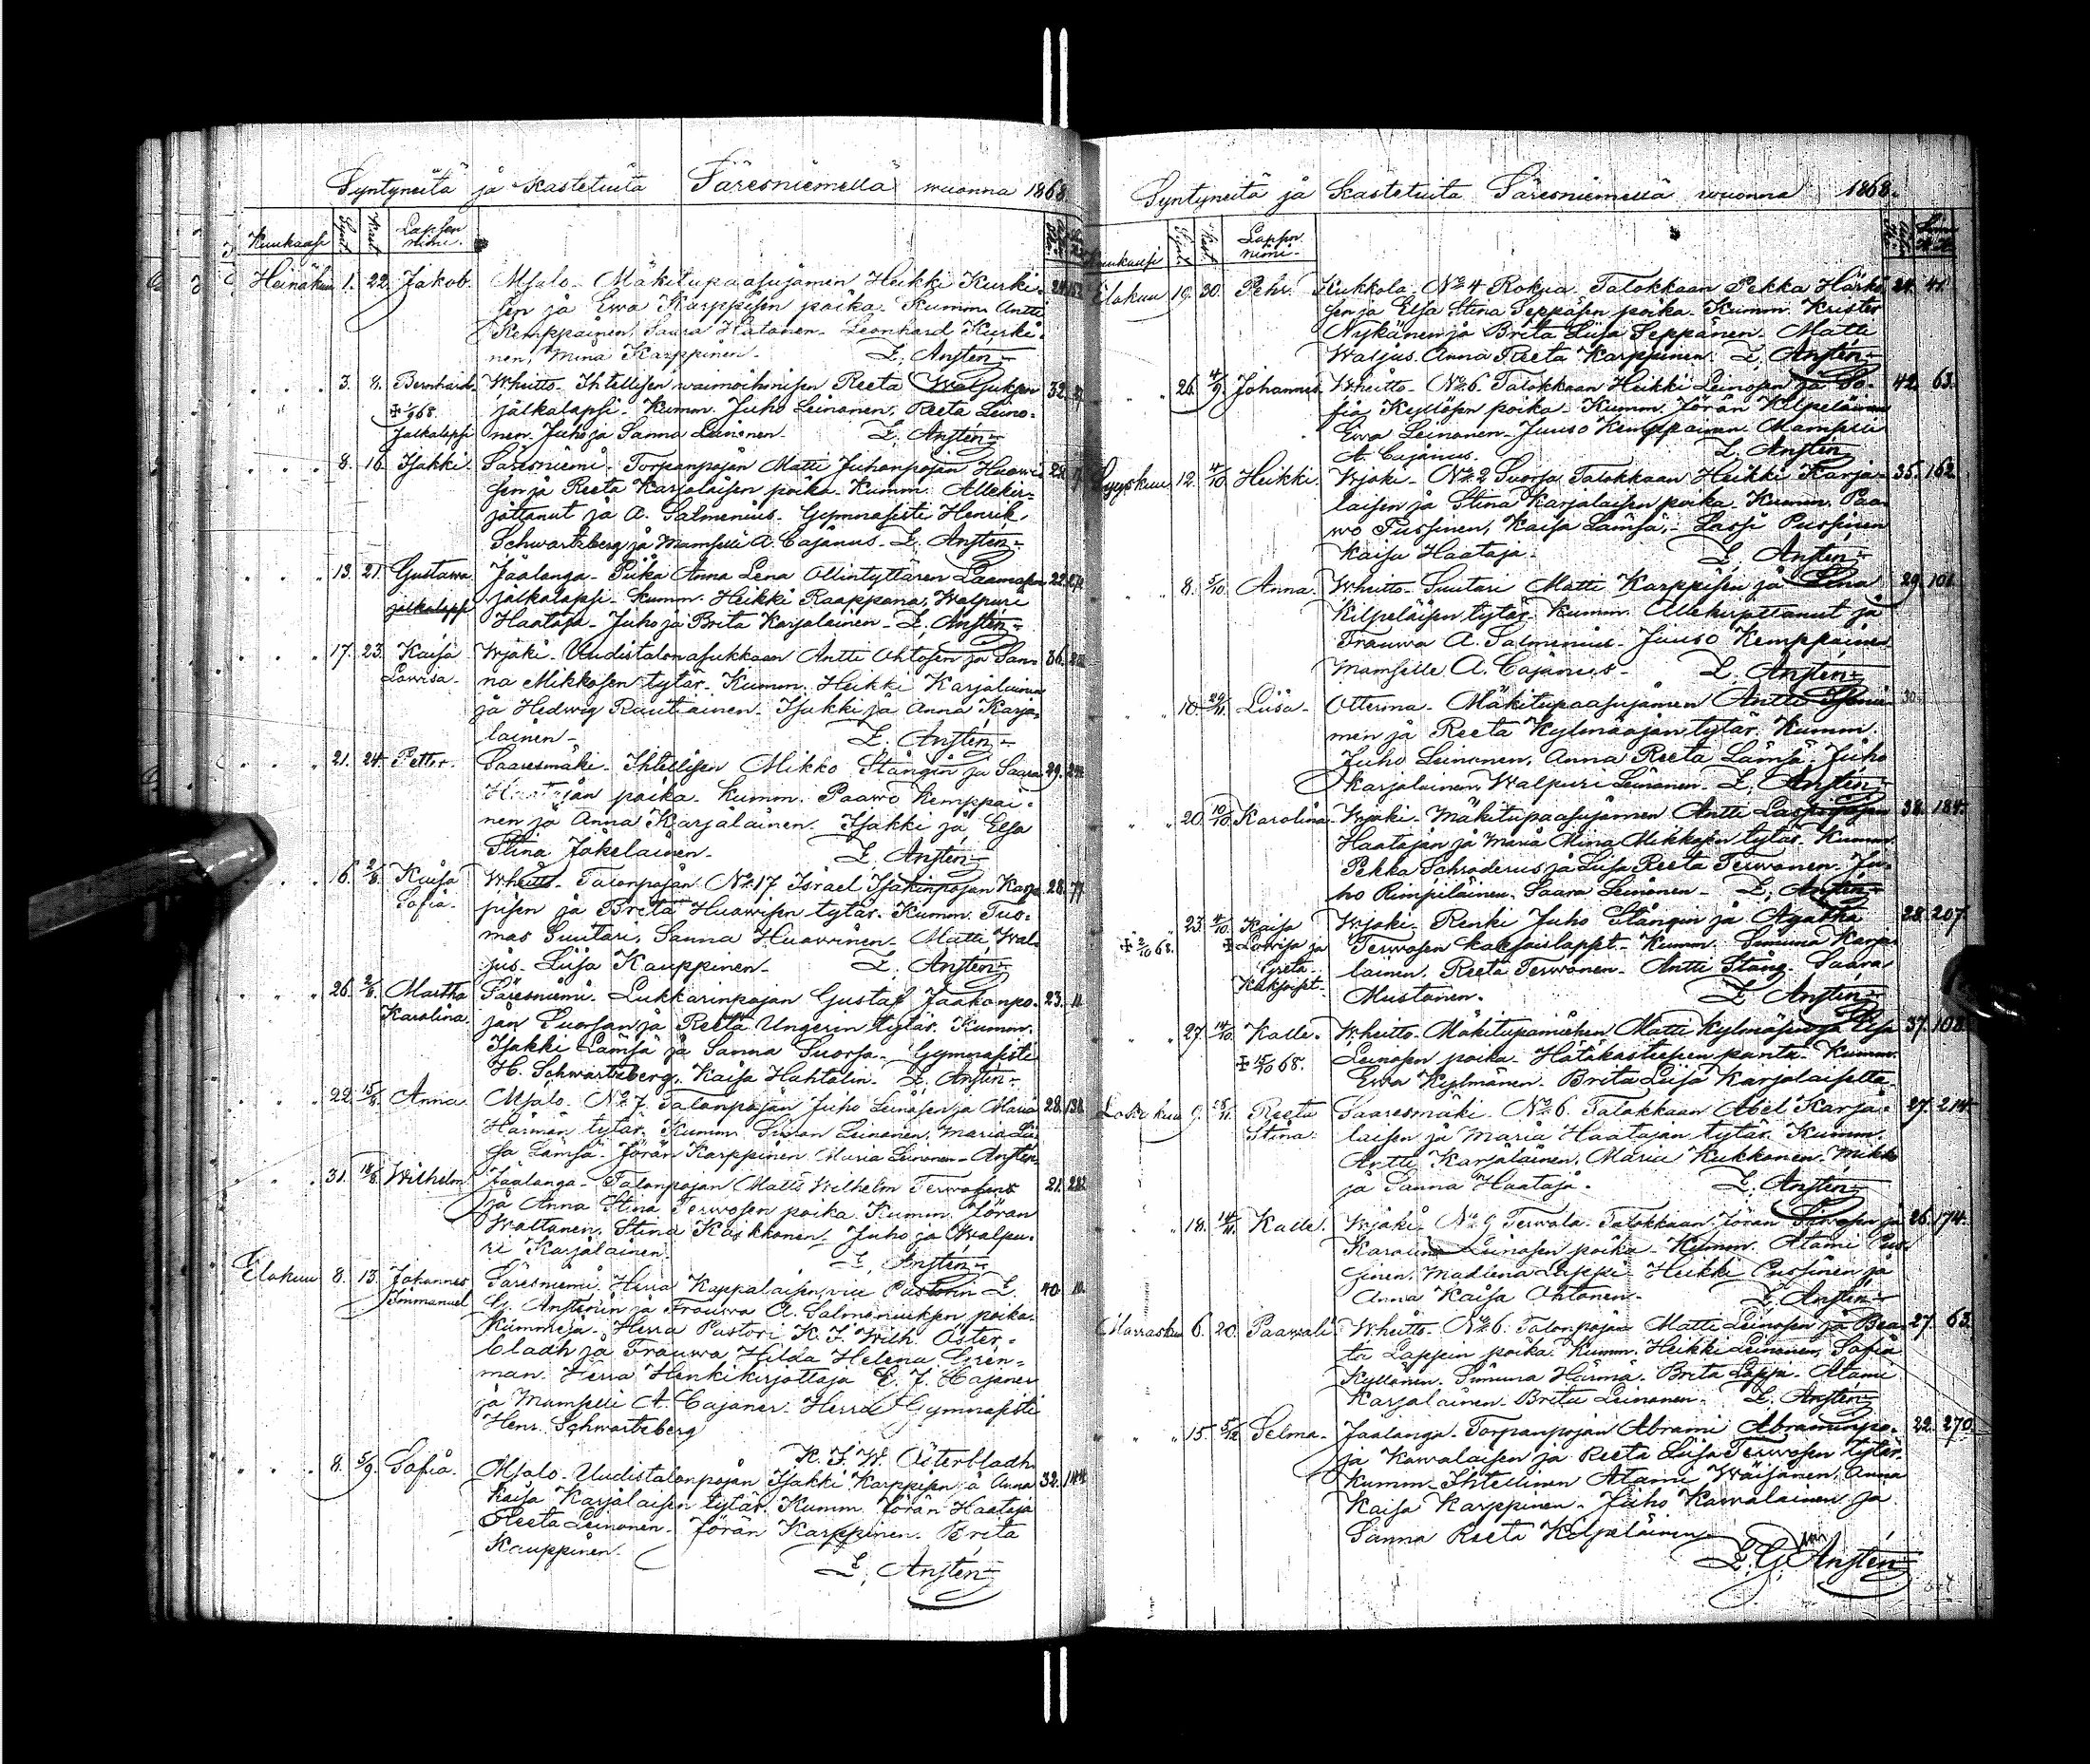 Syntyneitä ja Kastetuita Säresniemellä wuonna 1868.
Kuukausi Synt. Kast. Lapsen nimi.
Heinäkuu 1. 22. Jakob. Msalo. Mäkitupaasujamen Heikki Kurki-
sen ja Ewa Karppisen poika. Kumm. Antti
Kemppainen, Saara Hätönen. Leonhard Kurki-
nen, Mina Karppinen. E. Ansten
3. 8. Bernhard. Wheitto. Ihtellisen waimoihmisen Reeta Waljuksen 32.
jälkalapsi. Kumm. Juho Leinonen, Reeta Leino-
Jalkalapsi nen. Juho ja Sanna Leinonen. E. Ansten
8. 16. Isakki. Säresniemi. Torpanpojan Matti Juhonpojan Huowi-
sen ja Reeta Karjalaisen poika. Kumm. Allekir-
jottanut ja A. Salmenius. Gymnasisti Henrik
Schwartzberg ja Mamselli A. Cajanus. E. Ansten
13. 21. Gustawa. Jaalanga. Piika Anna Lena Ollintyttären Laamasen 22.
jalkalapsi jälkalapsi. Kumm. Heikki Raappana, Walpuri
Haataja. Juho ja Brita Karjalainen. E. Ansten
17. 23. Kaisa Wjoki. Uudistalonasukkaan Antti Ohtosen ja San- 36.
Lowisa. na Mikkosen tytär. Kumm. Heikki Karjalainen
ja Hedwig Rautiainen. Isakki ja Anna Karja-
lainen. E. Ansten
21. 24. Petter. Saaresmäki. Ihtellisen Mikko Stångin ja Saara 29.
Haatajan poika. Kumm. Paawo Kemppai-
nen ja Anna Karjalainen. Isakki ja Elsa
Stina Jokelainen. E. Ansten
16. 2/8. Kaisa Wheitto. Talonpojan No 17 Israel Isakinpojan Karp- 28. 77
Sofia. pisen ja Brita Huowisen tytär. Kumm. Tuo-
mas Suutari, Sanna Huowinen. Matti Wal-
jus. Liisa Kauppinen. E. Ansten
26. 2/8. Martha Säresniemi. Lukkarinpojan Gustaf Jaakonpo- 23. 11.
Karolina. jan Suorsan ja Reeta Ungerin tytär. Kumm.
Isakki Lämsä ja Sanna Suorsa. Gymnasisti
H. Schwartzberg. Kaisa Huhtalin. E. Ansten
22. 15/8. Anna Msalo. No 7. Talonpojan Juho Leinosen ja Maria 28. 136.
Härmän tytär. Kumm. Simon Leinonen, Maria Lii-
sa Lämsä. Jöran Karppinen. Maria Leinonen. Ansten
31. 18/8. Wilhelm. Jaalanga. Talonpojan Matts Wilhelm Terwosen 21. 282
ja Anna Stina Terwosen poika. Kumm. Jöran
Wattanen. Stina Kaikkonen. Juho ja Walpu-
ri Karjalainen. E. Ansten
Elokuu 8. 13. Johannes Säresniemi. Herra Kappalaisen, vice Pastorin E. 40. 10.
Immanuel G. Anstenin ja Frouwa A. Salmeniuksen poika.
Kummeja. Herra Pastori K. F. Wilh. Öster-
bladh ja Frouwa Hilda Helena Gren-
man. Herra Henkikirjottaja E. J. Cajaner
ja Mamselli A. Cajaner. Herra Gymnasisti
Henr. Schwartzberg
K. F. W. Österbladh
8. 5/9. Sofia. Msalo. Uudistalonpojan Isakki Karppisen ja Anna 32. 144
Kaisa Karjalaisen tytär. Kumm. Jöran Haataja
Reeta Leinonen. Jöran Karppinen. Brita
Kauppinen.
E. Ansten
Syntyneitä ja Kastetuita Säresniemellä wuonna 1868.
Kuukausi Synt. Kast. Lapsen nimi.
Elokuu 19. 30. Pehr. Kukkola. No 4 Rokua. Talokkaan Pekka Härkö- 24. 41.
sen ja Elsa Stina Seppäsen poika. Kumm. Krister
Nykänen ja Brita Liisa Seppänen. Matti
Waljus. Anna Reeta Karppinen. E. Ansten
26. 4/9. Johannes. Wheitto. No 6. Talokkaan Heikki Leinosen ja So- 42. 63.
fia Kyllösen poika. Kumm. Jörän Kilpeläinen
Ewa Leinonen. Juuso Kemppainen. Mamselli
A. Cajanus. E. Ansten
Syyskuu 12. 4/10 Heikki. Wjoki. No 2 Suorsa Talokkaan Heikki Karja- 35. 162.
laisen ja Stina Karjalaisen poika. Kumm. Paa-
wo Pussinen, Kaisa Lämsä. Lassi Pussinen
Kaisa Haataja. E. Ansten
8. 5/10 Anna. Wheitto. Suutari Matti Karppisen ja Lena 29. 101.
Kilpeläisen tytär. Kumm. Allekirjottanut ja
Frouwa A. Salmenius. Juuso Kemppainen
Mamselli A. Cajanus. E. Ansten
10. 29/11. Liisa. Otterma. Mäkitupaasujamen Antti 30.
men ja Reeta Kylmäojan tytär. Kumm.
Juho Leinonen. Anna Reeta Lämsä. Juho
Karjalainen. Walpuri Leinonen. E. Ansten
20. 10/10 Karolina. Wjoki. Mäkitupaasujamen Antti Lassinpojan 38. 184.
Haatajan ja Maria Mina Mikkosen tytär. Kumm.
Pekka Schroderus ja Liisa Reeta Terwonen. Ju-
ho Rimpiläinen. Saara Leinonen. E. Ansten
23. 4/10. Kaisa Wjoki. Renki Juho Stångin ja Agatha 28. 207.
✠ 2/10 68. Lowisa ja Terwosen kaksoislapset. Kumm. Simuna Karja-
Greta. lainen. Reeta Terwonen. Antti Stång. Saara
Kaksoiset. Mustonen. E. Ansten
27. 14/10. Kalle. Wheitto. Mäkitupamiehen Matti Kylmäsen ja Elsa 37. 108.
✠ 15/10 68. Leinosen poika. Hätäkasteesen panta. Kumm.
Ewa Kylmänen. Brita Liisa Karjalaiselta.
Lokakuu 9. 18/11. Reeta Saaresmäki. No 6. Talokkaan Abel Karja- 27. 214.
Stina. laisen ja Maria Haatajan tytär. Kumm.
Antti Karjalainen. Maria Kukkonen. Mikko
ja Sanna Haataja. E. Ansten
18. 14/11. Kalle. Wjoki. No 9 Terwola. Talokkaan Jöran ja 26. 174.
Karolina Leinosen poika. Kumm. Atami Pus-
sinen. Madlena Lappi. Heikki Pussinen ja
Anna Kaisa Ohtonen. E. Ansten
Marraskuu 6. 20. Paawali Wheitto. No 6. Talonpojan Matti Leinosen ja Bea- 27. 63.
ta Lappin poika. Kumm. Heikki Leinonen, Sofia
Kyllönen. Simuna Härmä. Brita Lappi. Atami
Karjalainen. Brita Leinonen. E. Ansten
15. 5/12 Selma. Jaalanga. Torpanpojan Abrami Abraminpo- 22. 270.
ja Kawalaisen ja Reeta Liisa Terwosen tytär.
Kumm. Ihtellinen Atami Wäisänen, Anna
Kaisa Karppinen. Juho Kawalainen ja
Sanna Reeta Kilpeläinen
E. G. Ansten